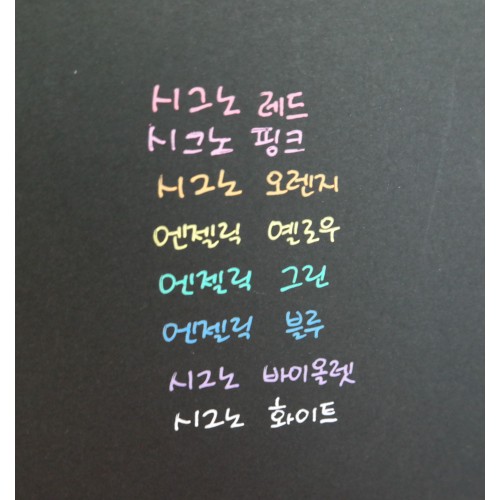 시그노 레드
시그노 핑크
시그노 오렌지
엔젤릭 옐로우
엔젤릭 그린
엔젤릭 블루
시그노 바이올렛
시그노 화이트